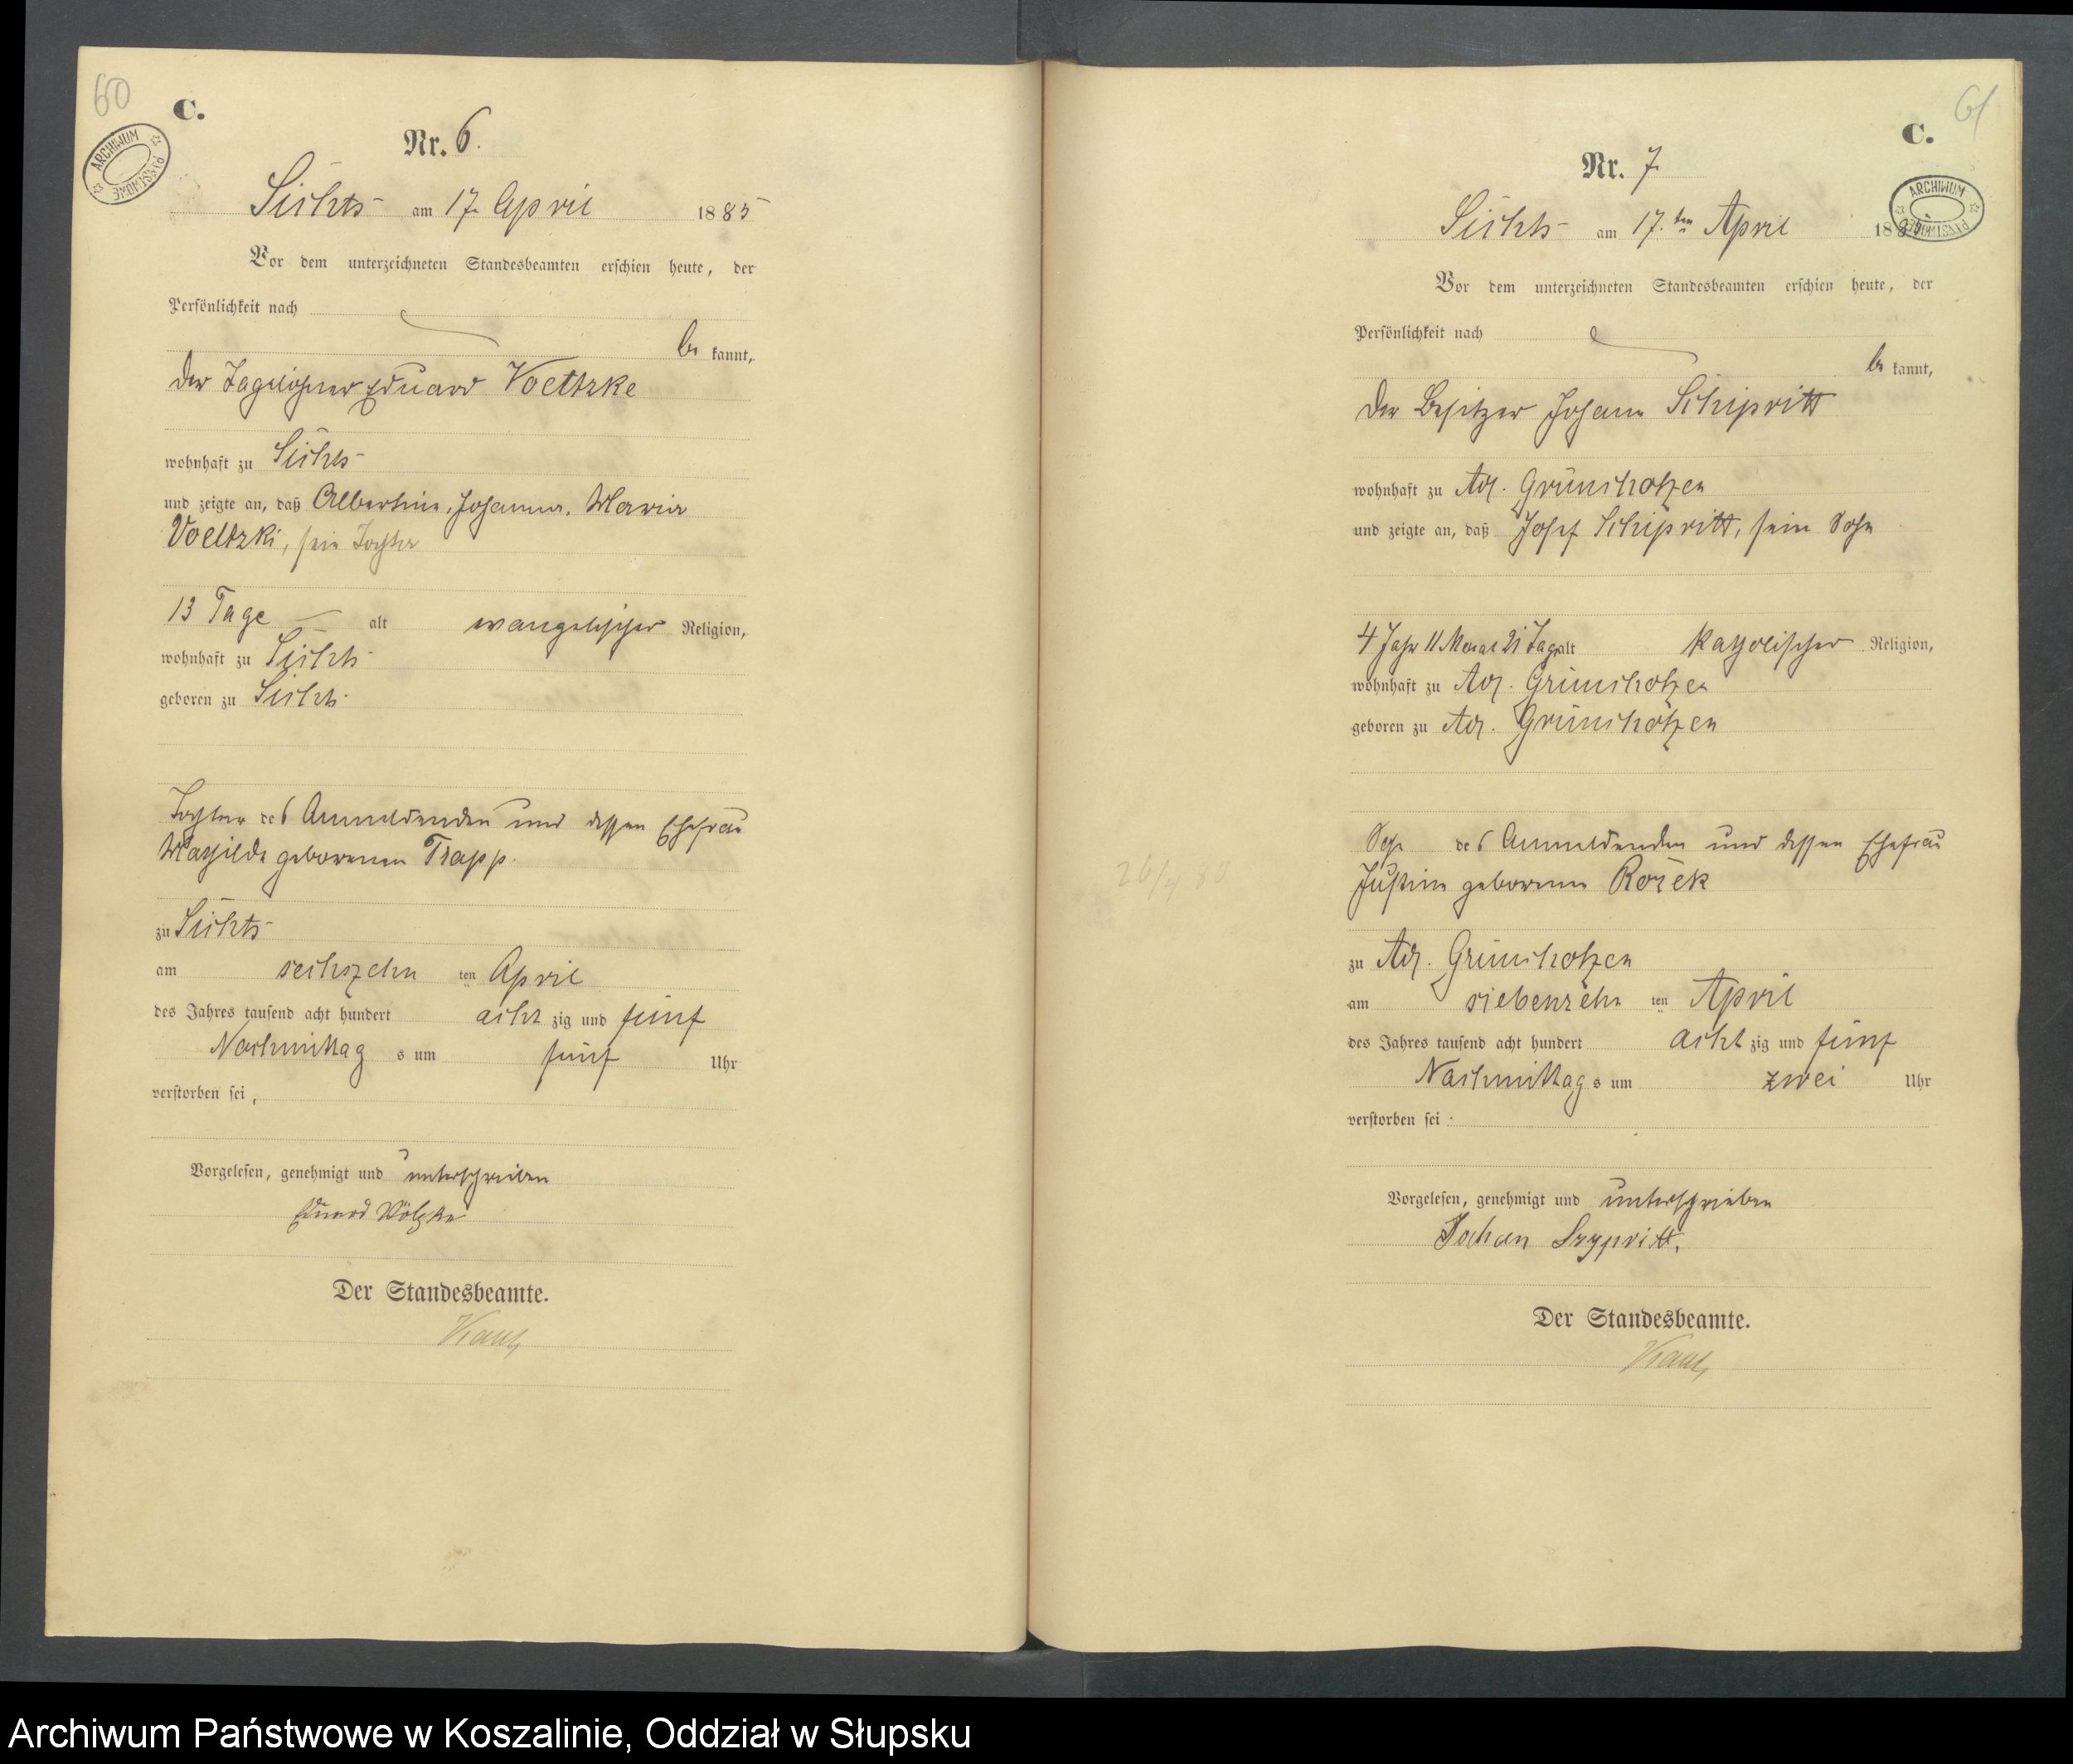 60
C.
ARCHIWUM PAŃSTWOWE
Nr. 6.
Lichts am 17. April 1885
Vor dem unterzeichneten Standesbeamten erschien heute, der
Persönlichkeit nach
be kannt,
der Tagelöhner Eduard Voeltzke
wohnhaft zu
und zeigte an, daß Albertine, Johanna, Maria
Voeltzki, sein Tochter
13 Tage alt evangelischer Religion,
wohnhaft zu
geboren zu
Tochter des Anmeldenden und dessen Ehefrau
Mathilde geborenen Trapp.
zu
am sechszehn ten April
des Jahres tausend acht hundert acht zig und fünf
Nachmittag s um fünf Uhr
verstorben sei,
Vorgelesen, genehmigt und unterschrieben
Eduard Wölzke
Der Standesbeamte.
61
C.
ARCHIWUM PAŃSTWOWE
Nr. 7
am 17.ten April 1885
Vor dem unterzeichneten Standesbeamten erschien heute, der
Persönlichkeit nach
be kannt,
der Besitzer Johann Schipritt
wohnhaft zu Adl. Grünchotzen
und zeigte an, daß Josef Schipritt, sein Sohn
4 Jahr 11 Monat 21 Tag alt katholischer Religion,
wohnhaft zu Adl. Grünchotzen
geboren zu Adl. Grünchotzen
Sohn des Anmeldenden und dessen Ehefrau
Justine geborenen Rozek
26/4 80
zu Adl. Grünchotzen
am siebenzehn ten April
des Jahres tausend acht hundert acht zig und fünf
Nachmittag s um zwei Uhr
verstorben sei.
Vorgelesen, genehmigt und unterschrieben
Johan Szypritt,
Der Standesbeamte.
Archiwum Państwowe w Koszalinie, Oddział w Słupsku